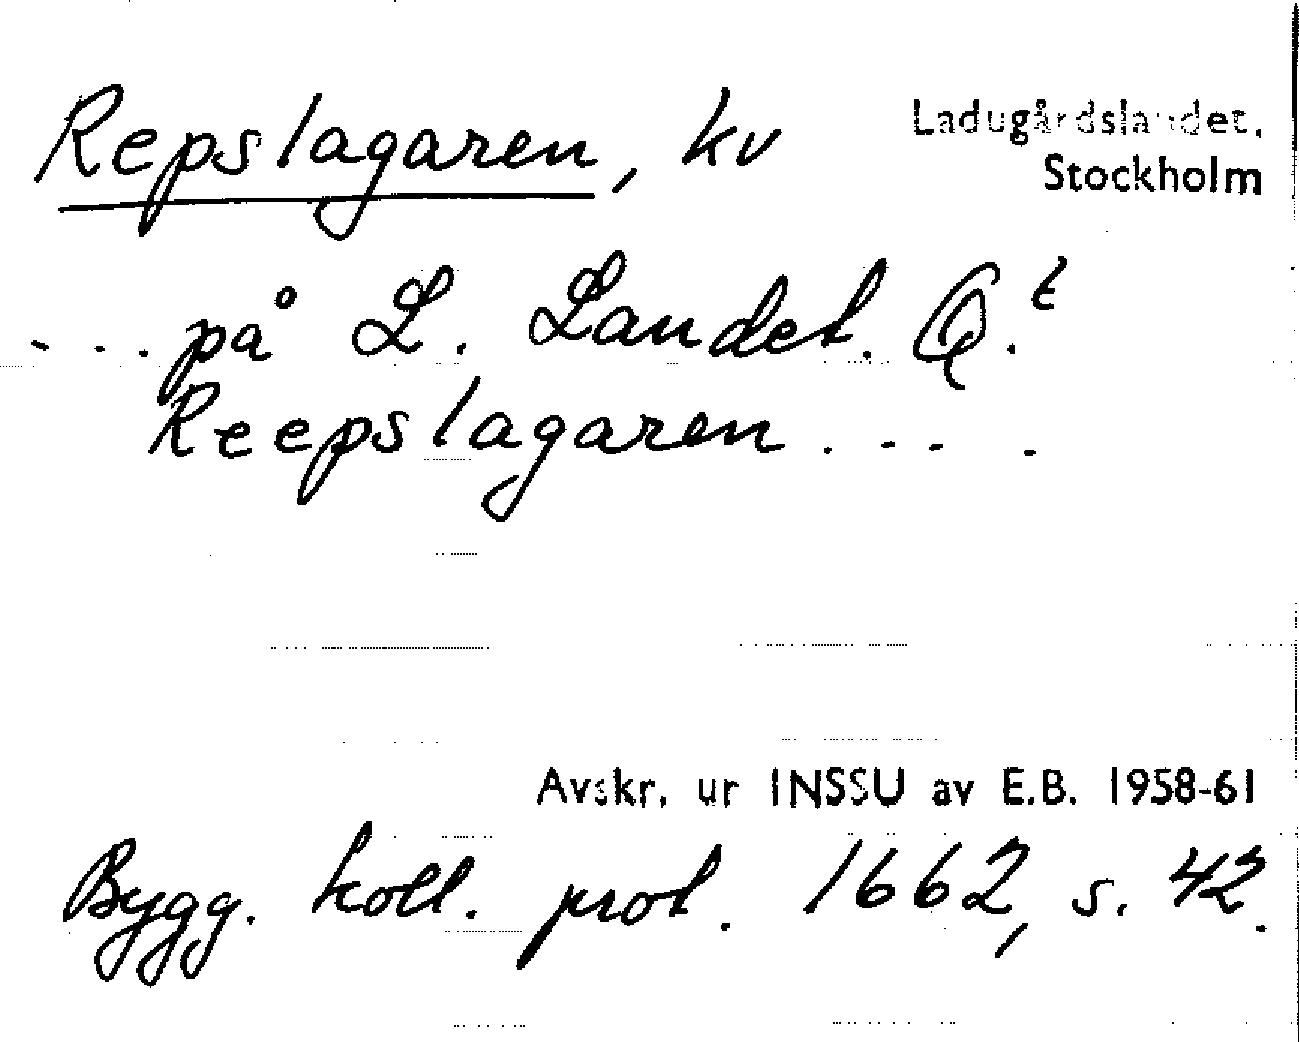 Repslagaren, kv
Ladugårdslandet,
Stockholm
... på L. Landet. Q.t
Reepslagaren ....
Avskr. ur INSSU av E.B. 1958-61
Bygg. koll. prot. 1662, s. 42.